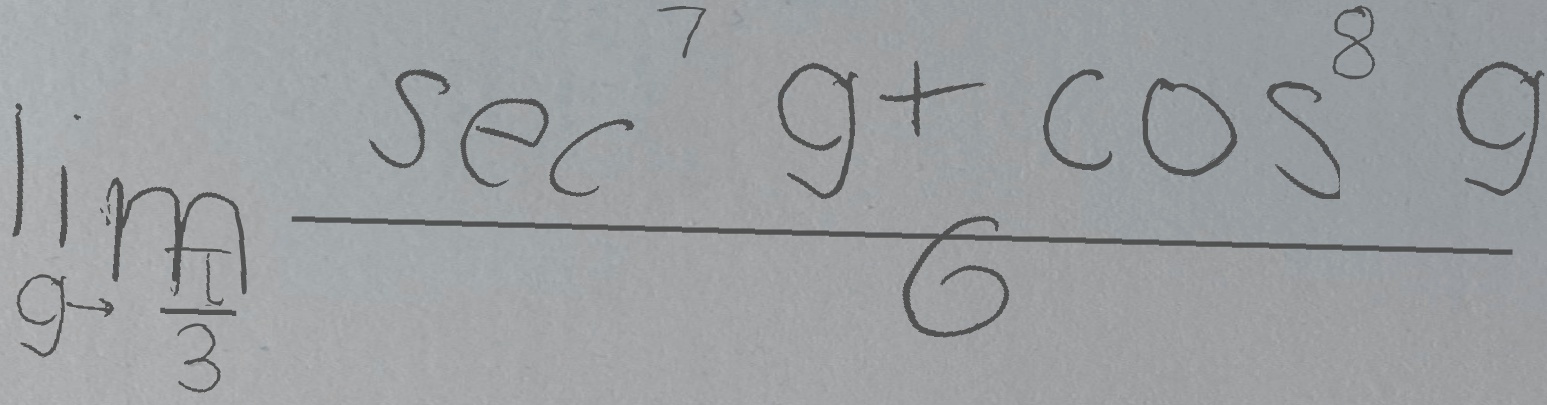 \lim_{g \to \frac{\pi}{3}} \frac{\sec^7 g + \cos^8 g}{6}